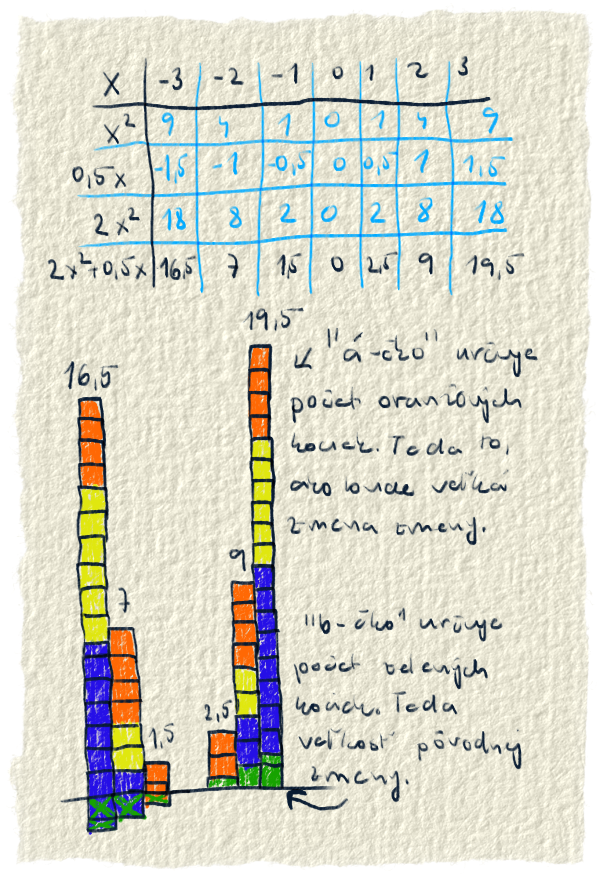 x -3 -2 -1 0 1 2 3
x² 9 4 1 0 1 4 9
0,5x -1,5 -1 -0,5 0 0,5 1 1,5
2x² 18 8 2 0 2 8 18
2x²+0,5x 16,5 7 1,5 0 2,5 9 19,5
19,5
16,5
"á-čko" určuje
počet oranžových
kociek. Teda to,
ako bude veľká
zmena zmeny.
9
7
"b-čko" určuje
počet zelených
kociek. Teda
2,5
1,5
veľkosť pôvodnej
zmeny.